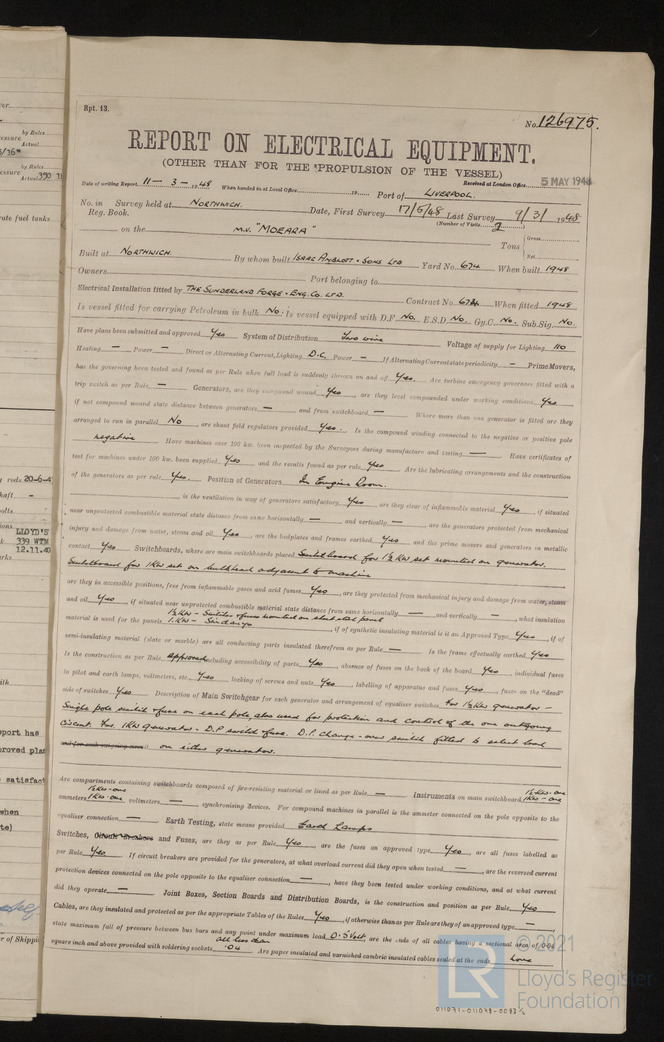 Rpt. 13.
No. 126975.
REPORT ON ELECTRICAL EQUIPMENT.
(OTHER THAN FOR THE PROPULSION OF THE VESSEL)
Received at London Office 5 MAY 1948
Date of writing Report 11 - 3 - 1948 When handed in at Local Office 19 Port of LIVERPOOL.
No. in Survey held at NORTHWICH. Date, First Survey 17/5/48 Last Survey 9/3/1948
Reg. Book. (Number of Visits 2)
on the M.V. "MOEARA" Tons Gross
Net
Built at NORTHWICH. By whom built ISAAC PIMBLOTT & SONS LTD Yard No. 674 When built 1948
Owners Port belonging to
Electrical Installation fitted by THE SUNDERLAND FORGE & ENG. CO. LTD. Contract No. 674 When fitted 1948
Is vessel fitted for carrying Petroleum in bulk No. Is vessel equipped with D.F. No. E.S.D. No. Gy.C. No. Sub.Sig. No
Have plans been submitted and approved Yes System of Distribution Two wire Voltage of supply for Lighting 110
Heating — Power — Direct or Alternating Current, Lighting D.C. Power — If Alternating Current state periodicity — Prime Movers,
has the governing been tested and found as per Rule when full load is suddenly thrown on and off Yes. Are turbine emergency governors fitted with a
trip switch as per Rule — Generators, are they compound wound Yes, are they level compounded under working conditions Yes,
if not compound wound state distance between generators — and from switchboard — Where more than one generator is fitted are they
arranged to run in parallel No, are shunt field regulators provided Yes. Is the compound winding connected to the negative or positive pole
negative Have machines over 100 kw. been inspected by the Surveyors during manufacture and testing — Have certificates of
test for machines under 100 kw. been supplied Yes and the results found as per rule Yes Are the lubricating arrangements and the construction
of the generators as per rule Yes. Position of Generators In Engine Room.
is the ventilation in way of generators satisfactory Yes, are they clear of inflammable material Yes, if situated
near unprotected combustible material state distance from same horizontally — and vertically —, are the generators protected from mechanical
injury and damage from water, steam and oil Yes, are the bedplates and frames earthed Yes and the prime movers and generators in metallic
contact Yes. Switchboards, where are main switchboards placed Switchboard for 1½ KW set mounted on generator.
Switchboard for 1 KW set on bulkhead adjacent to machine
are they in accessible positions, free from inflammable gases and acid fumes Yes, are they protected from mechanical injury and damage from water, steam
and oil Yes, if situated near unprotected combustible material state distance from same horizontally — and vertically —, what insulation
material is used for the panels 1½ KW - Switches & fuses mounted on sheet steel panel
1 KW - Sindanyo if of synthetic insulating material is it an Approved Type Yes, if of
semi-insulating material (slate or marble) are all conducting parts insulated therefrom as per Rule — Is the frame effectually earthed Yes
Is the construction as per Rule including accessibility of parts Yes, absence of fuses on the back of the board Yes, individual fuses
to pilot and earth lamps, voltmeters, etc. Yes locking of screws and nuts Yes, labelling of apparatus and fuses Yes, fuses on the "dead"
side of switches Yes. Description of Main Switchgear for each generator and arrangement of equaliser switches For 1½ KW generator -
Single pole switch & fuse on each pole, also used for protection and control of the one outgoing
circuit. For 1 KW generator - D.P. switch & fuse. D.P. change-over switch fitted to select load
on either generator.
Are compartments containing switchboards composed of fire-resisting material or lined as per Rule — Instruments on main switchboard 1½ KW - one
1 KW - one
ammeters 1½ KW - one
1 KW - one voltmeters — synchronising devices. For compound machines in parallel is the ammeter connected on the pole opposite to the
equaliser connection — Earth Testing, state means provided Earth Lamps
Switches, Circuit Breakers and Fuses, are they as per Rule Yes, are the fuses an approved type Yes, are all fuses labelled as
per Rule Yes If circuit breakers are provided for the generators, at what overload current did they open when tested —, are the reversed current
protection devices connected on the pole opposite to the equaliser connection —, have they been tested under working conditions, and at what current
did they operate — Joint Boxes, Section Boards and Distribution Boards, is the construction and position as per Rule Yes
Cables, are they insulated and protected as per the appropriate Tables of the Rules Yes, if otherwise than as per Rule are they of an approved type
state maximum fall of pressure between bus bars and any point under maximum load 0.5 Volt are the ends of all cables having a sectional area of .004
square inch and above provided with soldering sockets all less than
.04 Are paper insulated and varnished cambric insulated cables sealed at the ends
© 2021
LR
Lloyd's Register
Foundation
by Rules
Actual
by Rules
Actual
rate fuel tanks
20-6-4
LLOYD'S
339 WTM
12.11.4
port has
proved plan
satisfact
when
te)
r of Shippin